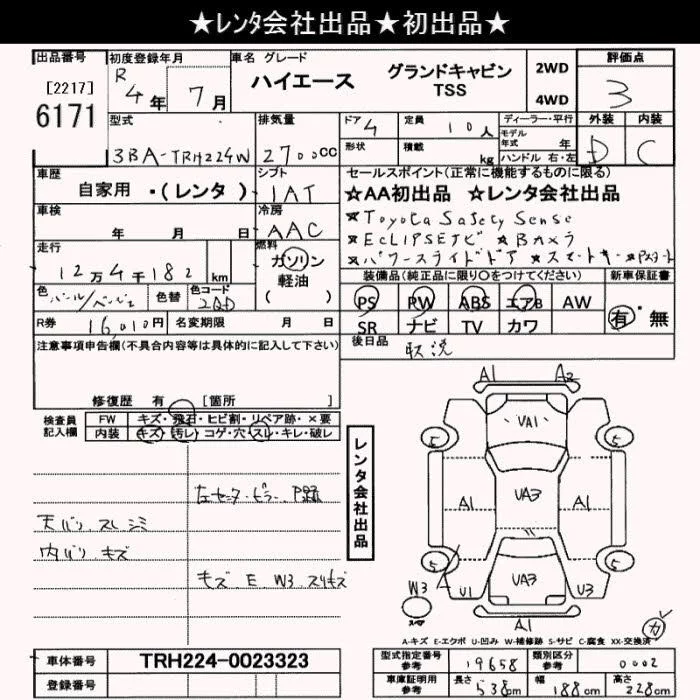 ★レンタ会社出品★初出品★
出品番号
[2217]
6171
初度登録年月
R 4年 7月
車名 グレード
ハイエース グランドキャビン
TSS
2WD
4WD
評価点
3
型式
3BA-TRH224W
排気量
2700cc
ドア 4
定員 10人
形状
積載 kg
ディーラー・平行
モデル
年式 年
ハンドル 右・左
外装 内装
D C
車歴
自家用 ・(レンタ )
シフト
IAT
セールスポイント(正常に機能するものに限る)
☆AA初出品 ☆レンタ会社出品
★Toyota Safety Sense
★ECLIPSEナビ ★Bカメラ
★パワースライドドア ★スマートキー ★Pスタート
車検 年 月 日
冷房
AAC
走行
12万4千182km
燃料
ガソリン
軽油
( )
色 パール/ベージュ
色替
色コード
2QD
装備品(純正品に限り○をつけてください)
PS PW ABS エアB AW
SR ナビ TV カワ
新車保証書
有・無
R券 16,010円
名変期限 月 日
後日品 取説
注意事項申告欄(不具合内容等は具体的に記入して下さい)
修復歴 有 [箇所 ]
検査員
記入欄
FW キズ・飛石・ヒビ割・リペア跡・×要
内装 キズ・汚レ・コゲ・穴・スレ・キレ・破レ
左センターピラー P跡
天バリ スレ シミ
内バリ キズ
キズ E W3 スリキズ
レンタ会社出品
A1 A2
VA1
5 5
A1 UA3 A1
5 5
W3 U1 UA3 U3
A1
カ
A-キズ E-エクボ U-凹み W-補修跡 S-サビ C-腐食 XX-交換済
車体番号 TRH224-0023323
登録番号
型式指定番号
参考
19658
類別区分
参考
0002
車庫証明用
参考
長さ 538cm
幅 188cm
高さ 228cm